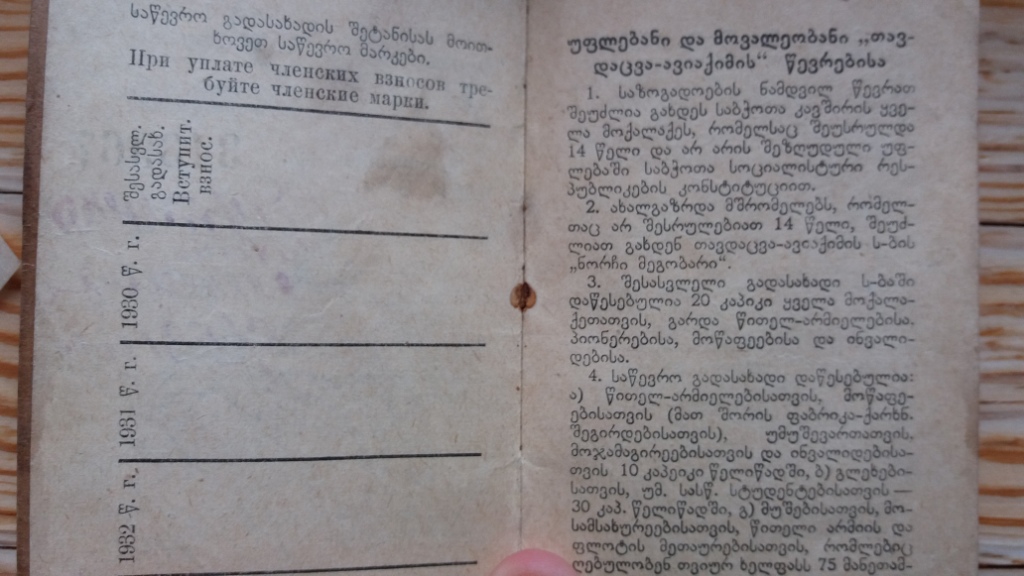 საწევრო გადასახადის შეტანისას მოით-
ხოვეთ საწევრო მარკები.
При уплате членских взносов тре-
буйте членские марки.
შესავლ.
გადასახ.
Вступит.
взнос.
1930 წ. г.
1931 წ. г.
1932 წ. г.
უფლებანი და მოვალეობანი „თავ-
დაცვა-ავიაქიმის“ წევრებისა
1. საზოგადოების ნამდვილ წევრათ
შეუძლია გახდეს საბჭოთა კავშირის ყვე-
ლა მოქალაქეს, რომელსაც შეუსრულდა
14 წელი და არ არის შეზღუდული უფ-
ლებაში საბჭოთა სოციალისტური რეს-
პუბლიკების კონსტიტუციით.
2. ახალგაზრდა მშრომელებს, რომელ-
თაც არ შესრულებიათ 14 წელი, შეუძ-
ლიათ გახდენ თავდაცვა-ავიაქიმის ს-ბის
„ნორჩი მეგობარი“.
3. შესასვლელი გადასახადი ს-ბაში
დაწესებულია 20 კაპიკი ყველა მოქალა-
ქეთათვის, გარდა წითელ-არმიელებისა,
პიონერებისა, მოწაფეებისა და ინვალი-
დებისა.
4. საწევრო გადასახადი დაწესებულია:
ა) წითელ-არმიელებისათვის, მოწაფე-
ებისათვის (მათ შორის ფაბრიკა-ქარხნ.
შეგირდებისათვის), უმუშევართათვის,
მოჯამაგირეებისათვის და ინვალიდებისა-
თვის 10 კაპეიკი წელიწადში, ბ) გლეხები-
სათვის, უმ. სასწ. სტუდენტებისათვის —
30 კაპ. წელიწადში, გ) მუშებისათვის, მო-
სამსახურეებისათვის, წითელი არმიის და
ფლოტის მეთაურებისათვის, რომლებიც
ღებულობენ თვიურ ხელფასს 75 მანეთამ-